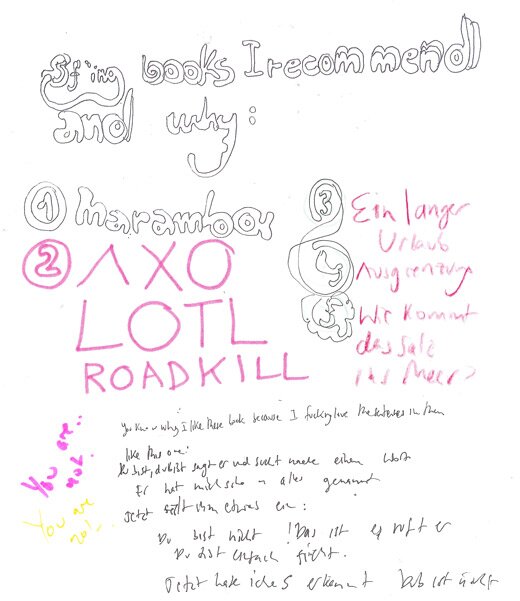 books I recommend
and why:
① Marambou
② AXO
LOTL
ROADKILL
③ Ein langer
Urlaub
④ Ausgrenzung
⑤ Wie kommt
das Salz
ins Meer?
You are..
not.
You are
not.
you know why I like these book because I fucking love the sentences in them
like this one:
du bist, du bist sagt er und sucht nach einem Wort
Er hat mich schon alles genannt
Jetzt fällt ihm etwas ein:
Du bist nicht! Das ist es ruft er
Du bist einfach nicht.
Jetzt hat er es erkannt